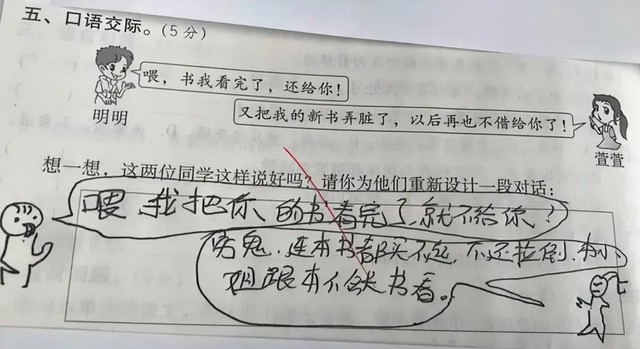 五、口语交际。(5分)
喂，书我看完了，还给你！
明明
又把我的新书弄脏了，以后再也不借给你了！
萱萱
想一想，这两位同学这样说好吗？请你为他们重新设计一段对话：
喂，我把你的书看完了，就不给你？
穷鬼，连本书都买不起，不还拉倒，本小
姐跟本不会书看。